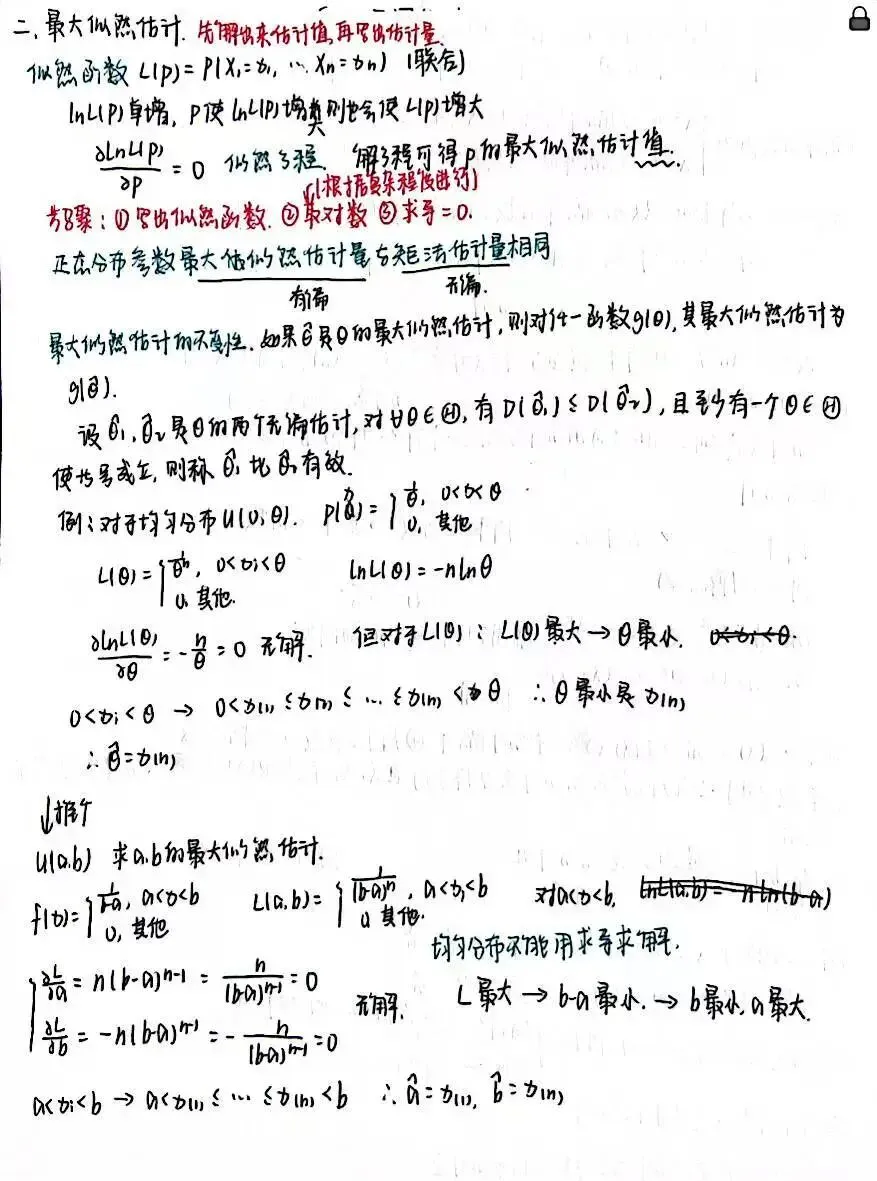 二、最大似然估计. 先解出来估计值,再写出估计量.
似然函数 L(p)=P(X₁=x₁, … Xn=xn) (联合)
lnL(P)单增, P使lnL(P)增大则也会使L(P)增大
∂lnL(p)/∂p = 0 似然方程. 解方程可得p的最大似然估计值.
(根据复杂程度进行)
步骤: ① 写出似然函数. ②取对数 ③求导=0.
正态分布参数最大似然估计量与矩法估计量相同
有偏 无偏.
最大似然估计的不变性. 如果θ̂是θ的最大似然估计, 则对任一函数g(θ), 其最大似然估计为
g(θ̂).
设 θ̂₁, θ̂₂是θ的两个无偏估计, 对∀θ∈Ⓗ, 有 D(θ̂₁) ≤ D(θ̂₂), 且至少有一个θ∈Ⓗ
使号成立, 则称 θ̂₁ 比 θ̂₂ 有效.
例: 对于均匀分布U(0,θ). P()={1/θ, 0<x<θ
0, 其他
L(θ)={1/θⁿ, 0<xi<θ lnL(θ)=-nlnθ
0, 其他.
∂lnL(θ)/∂θ = -n/θ = 0 无解. 但对于L(θ): L(θ)最大→θ最小. 0<xi<θ.
0<xi<θ → 0<x(1)≤x(2)≤ … ≤x(n)<θ ∴θ最小是x(n)
∴θ̂=x(n)
↓推广
U(a,b) 求a,b的最大似然估计.
f(x)={1/b-a, a<x<b L(a,b)={1/(b-a)ⁿ, a<xi<b 对a<x<b, lnL(a,b)= -nln(b-a)
0, 其他 0 其他.
均匀分布不能用求导求解.
{∂L/∂a = n(b-a)ⁿ⁻¹ = n/(b-a)ⁿ⁻¹ = 0
无解. L最大 → b-a最小. → b最小, a最大.
∂L/∂b = -n(b-a)ⁿ⁻¹ = -n/(b-a)ⁿ⁻¹ = 0
a<xi<b → a<x(1)≤ … ≤x(n)<b ∴ â=x(1), b̂=x(n)